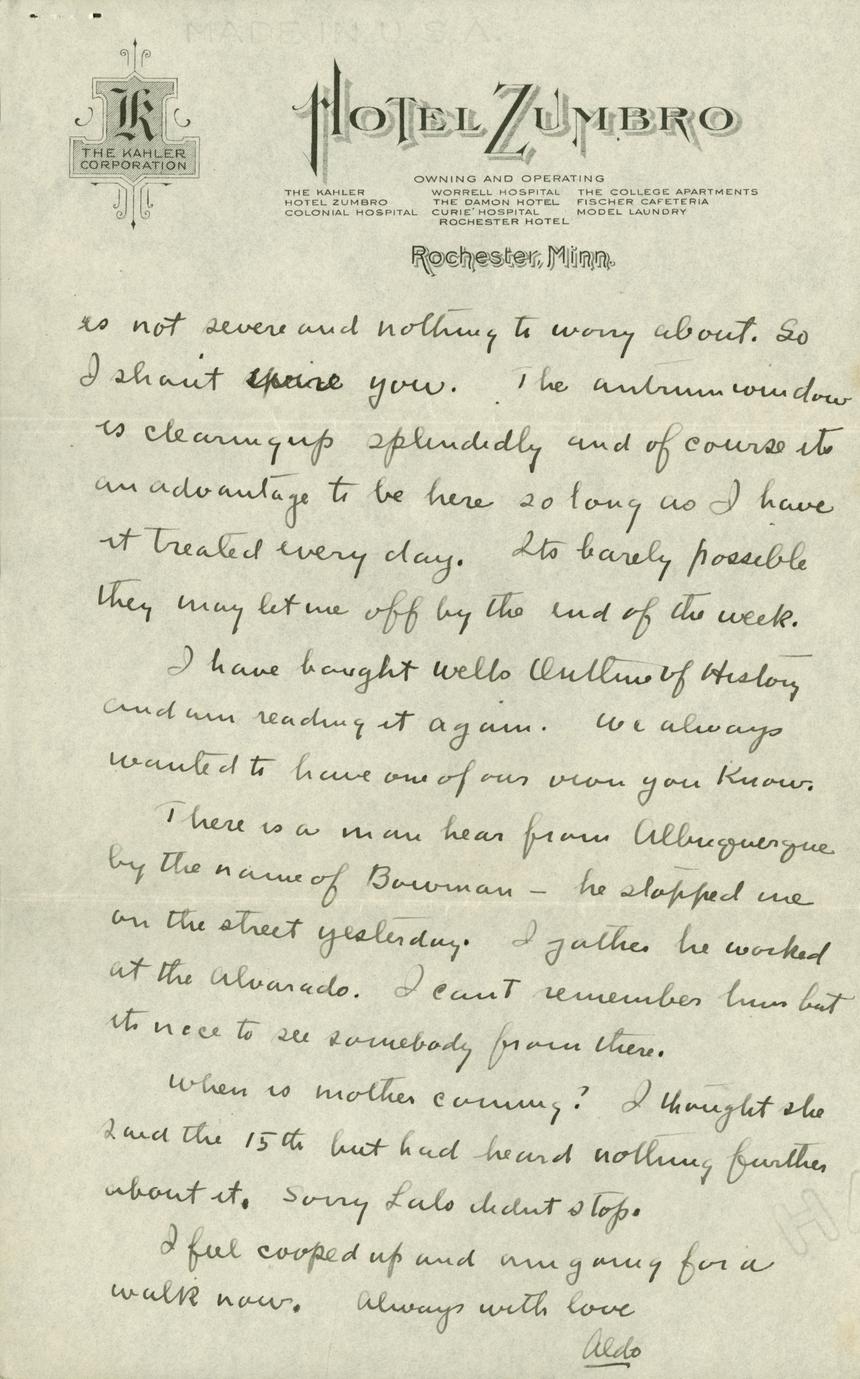 K
THE KAHLER
CORPORATION
HOTEL ZUMBRO
OWNING AND OPERATING
THE KAHLER WORRELL HOSPITAL THE COLLEGE APARTMENTS
HOTEL ZUMBRO THE DAMON HOTEL FISCHER CAFETERIA
COLONIAL HOSPITAL CURIE' HOSPITAL MODEL LAUNDRY
ROCHESTER HOTEL
Rochester, Minn.
is not severe and nothing to worry about. So
I shan't wire you. The antrum window
is clearing up splendidly and of course its
an advantage to be here so long as I have
it treated every day. Its barely possible
they may let me off by the end of the week.
I have bought Wells Outline of History
and am reading it again. We always
wanted to have one of our own you know.
There is a man hear from Albuquerque
by the name of Bowman – he stopped me
on the street yesterday. I gather he worked
at the Alvarado. I cant remember him but
its nice to see somebody from there.
When is mother coming? I thought she
said the 15th but had heard nothing further
about it. Sorry Lalo didnt stop.
I feel cooped up and am going for a
walk now. Always with love
Aldo